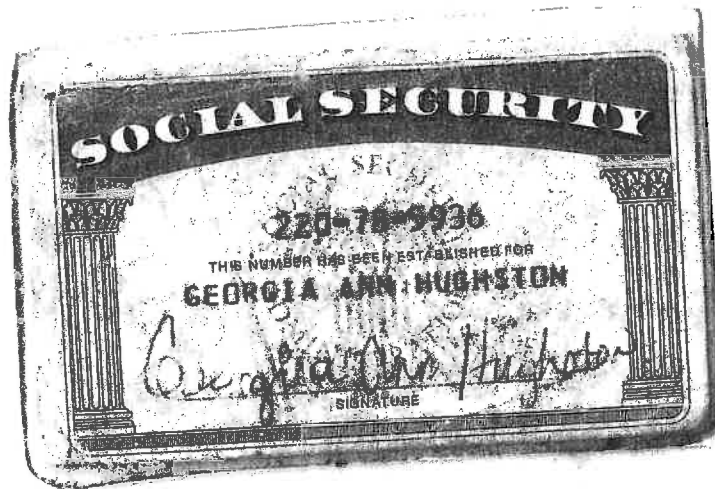 SOCIAL SECURITY
THIS NUMBER HAS BEEN ESTABLISHED FOR
GEORGIA ANN HUGHSTON
Georgia Ann Hughston
SIGNATURE